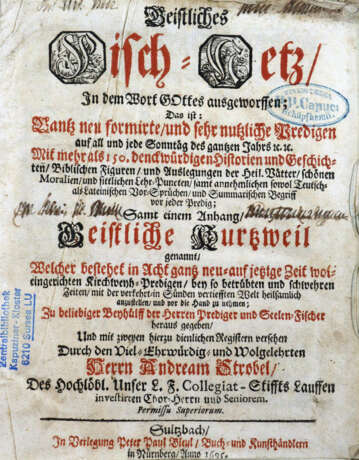 Geistliches
Fisch-Netz/
In dem Wort GOttes ausgeworffen;
Das ist:
Gantz neu formirte/ und sehr nutzliche Predigen
auf all und jede Sonntäg des gantzen Jahrs ꝛc. ꝛc.
Mit mehr als 150. denckwürdigen Historien und Geschich-
ten/ Biblischen Figuren/ und Auslegungen der Heil. Vätter/ schönen
Moralien/ und sittlichen Lehr-Puncten/ samt annehmlichen sowol Teutsch-
als Lateinischen Vor-Sprüchen/ und Summarischen Begriff
vor jeder Predig;
Samt einem Anhang/
Geistliche Kurtzweil
genannt/
Welcher bestehet in Acht gantz neu-auf jetzige Zeit wol-
eingerichten Kirchweyh-Predigen/ bey so betrübten und schwehren
Zeiten/ mit der verkehrt-in Sünden vertiefften Welt heilsamlich
anzustellen/ und vor die Hand zu nehmen;
Zu beliebiger Beyhülff der Herren Prediger und Seelen-Fischer
heraus gegeben/
Und mit zweyen hierzu dienlichen Registern versehen
Durch den Viel-Ehrwürdig-und Wolgelehrten
Herrn Andream Strobel/
Des Hochlöbl. Unser L. F. Collegiat-Stiffts Lauffen
investirten Chor-Herrn und Seniorem.
Permissu Superiorum.
Sultzbach/
In Verlegung Peter Paul Bleul/ Buch-und Kunsthändlern
in Nürnberg/ Anno
Zentralbibliothek
Kapuziner-Kloster
6210 Sursee LU